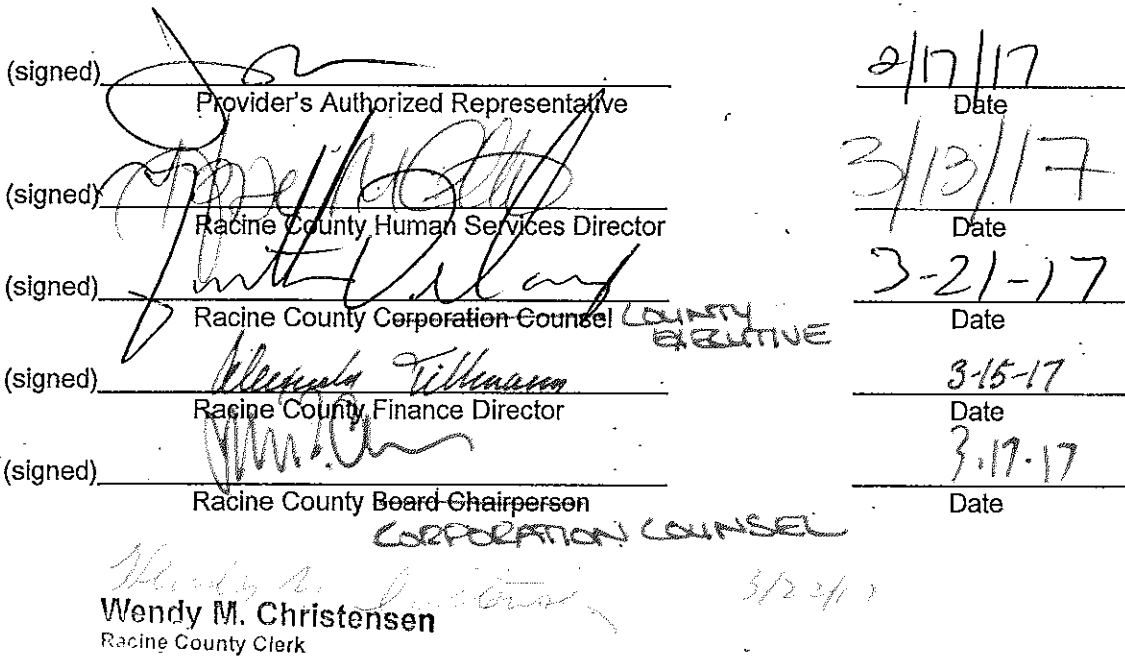 (signed) 2/17/17
Provider's Authorized Representative Date
(signed) 3/13/17
Racine County Human Services Director Date
(signed) 3-21-17
Racine County Corporation Counsel COUNTY Date
EXECUTIVE
(signed) Tillmann 3-15-17
Racine County Finance Director Date
(signed) 3.17.17
Racine County Board Chairperson Date
CORPORATION COUNSEL
Wendy M. Christensen
Racine County Clerk